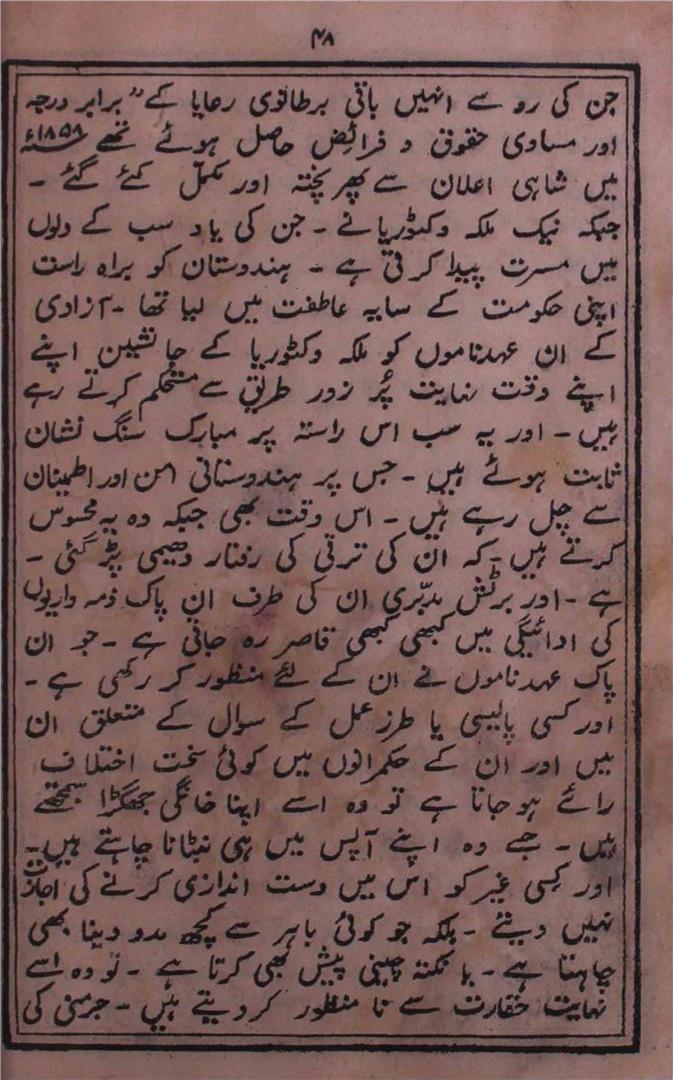 ۴۸
جن کی رو سے انہیں باقی برطانوی رعایا کے " برابر درجہ
اور مساوی حقوق و فرائض حاصل ہوئے تھے ۱۸۵۸ء
میں شاہی اعلان سے پھر پختہ اور مکمل کئے گئے ۔
جبکہ نیک ملکہ وکٹوریا نے ۔ جن کی یاد سب کے دلوں
میں مسرت پیدا کرتی ہے ۔ ہندوستان کو براہ راست
اپنی حکومت کے سایہ عاطفت میں لیا تھا ۔ آزادی
کے ان عہدناموں کو ملکہ وکٹوریا کے جانشین اپنے
اپنے وقت نہایت پُر زور طریق سے مستحکم کرتے رہے
ہیں ۔ اور یہ سب اس راستہ پر مبارک سنگ نشان
ثابت ہوئے ہیں ۔ جس پر ہندوستانی امن اور اطمینان
سے چل رہے ہیں ۔ اس وقت بھی جبکہ وہ یہ محسوس
کرتے ہیں ۔ کہ ان کی ترقی کی رفتار دھیمی پڑ گئی ۔
ہے ۔ اور برٹش مدبّری ان کی طرف ان پاک ذمہ داریوں
کی ادائیگی میں کبھی کبھی قاصر رہ جاتی ہے ۔ جو ان
پاک عہدناموں نے ان کے لئے منظور کر رکھی ہے ۔
اور کسی پالیسی یا طرز عمل کے سوال کے متعلق ان
میں اور ان کے حکمرانوں میں کوئی سخت اختلاف
رائے ہو جاتا ہے تو وہ اسے اپنا خانگی جھگڑا سمجھتے
ہیں ۔ جسے وہ اپنے آپس میں ہی نبٹانا چاہتے ہیں ۔
اور کسی غیر کو اس میں دست اندازی کرنے کی اجازت
نہیں دیتے ۔ بلکہ جو کوئی باہر سے کچھ مدد دینا بھی
چاہتا ہے ۔ یا نکتہ چینی پیش بھی کرتا ہے ۔ تو وہ اسے
نہایت حقارت سے نا منظور کر دیتے ہیں ۔ جرمنی کی